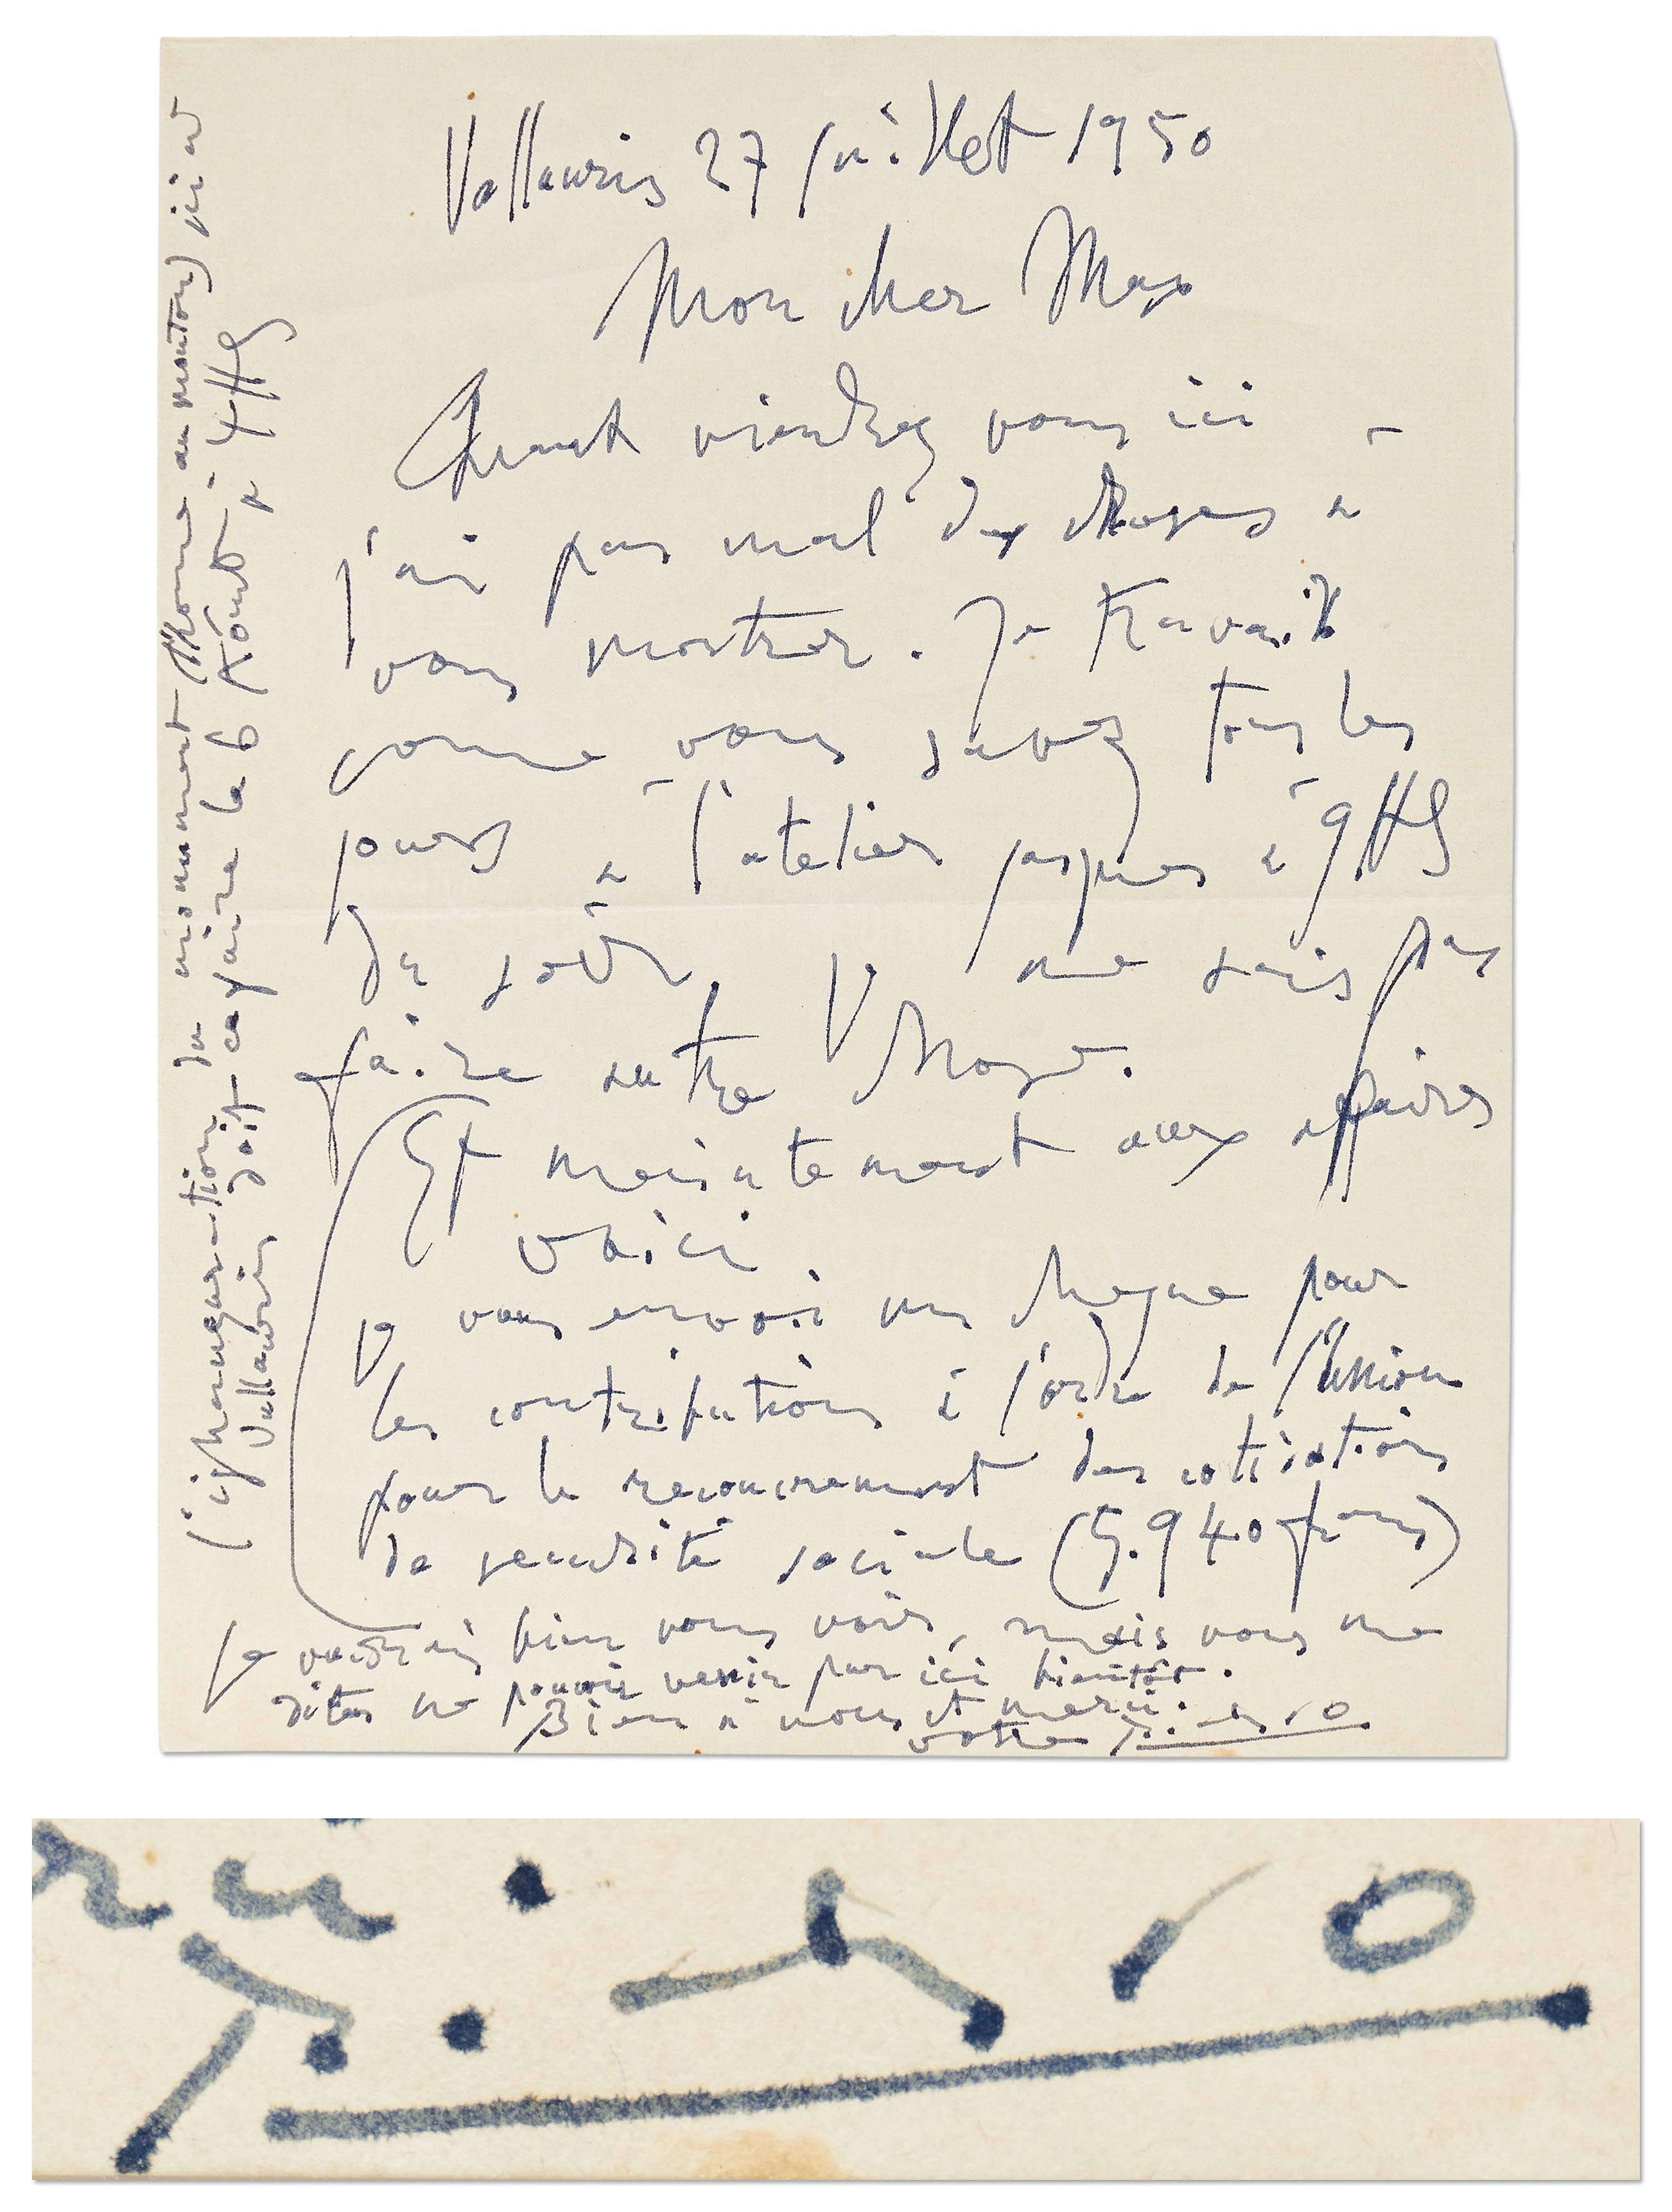 Vallauris 27 juillet 1950
Mon cher Max
Quand viendrez vous ici -
j'ai pas mal des choses a
vous montrer. Je travaille
come vous savez tous les
jours à l'atelier jusques à 9 H S
du soir, je ne sais pas
faire autre chose.
Et maintenant aux affaires
voici.
je vous envoi un cheque pour
les contributions à l'ordre de l'Union
pour le recouvrement des cotisations
de securité sociale (5.940 francs)
Je voudrais bien vous voir, mais vous me
dites ne pouvoir venir par ici bientôt.
Bien a vous et merci.
votre Picasso
(l'inauguration du monument (l'homme au mouton) ici
Vallauris doit ce faire le 6 Août a 4 H S